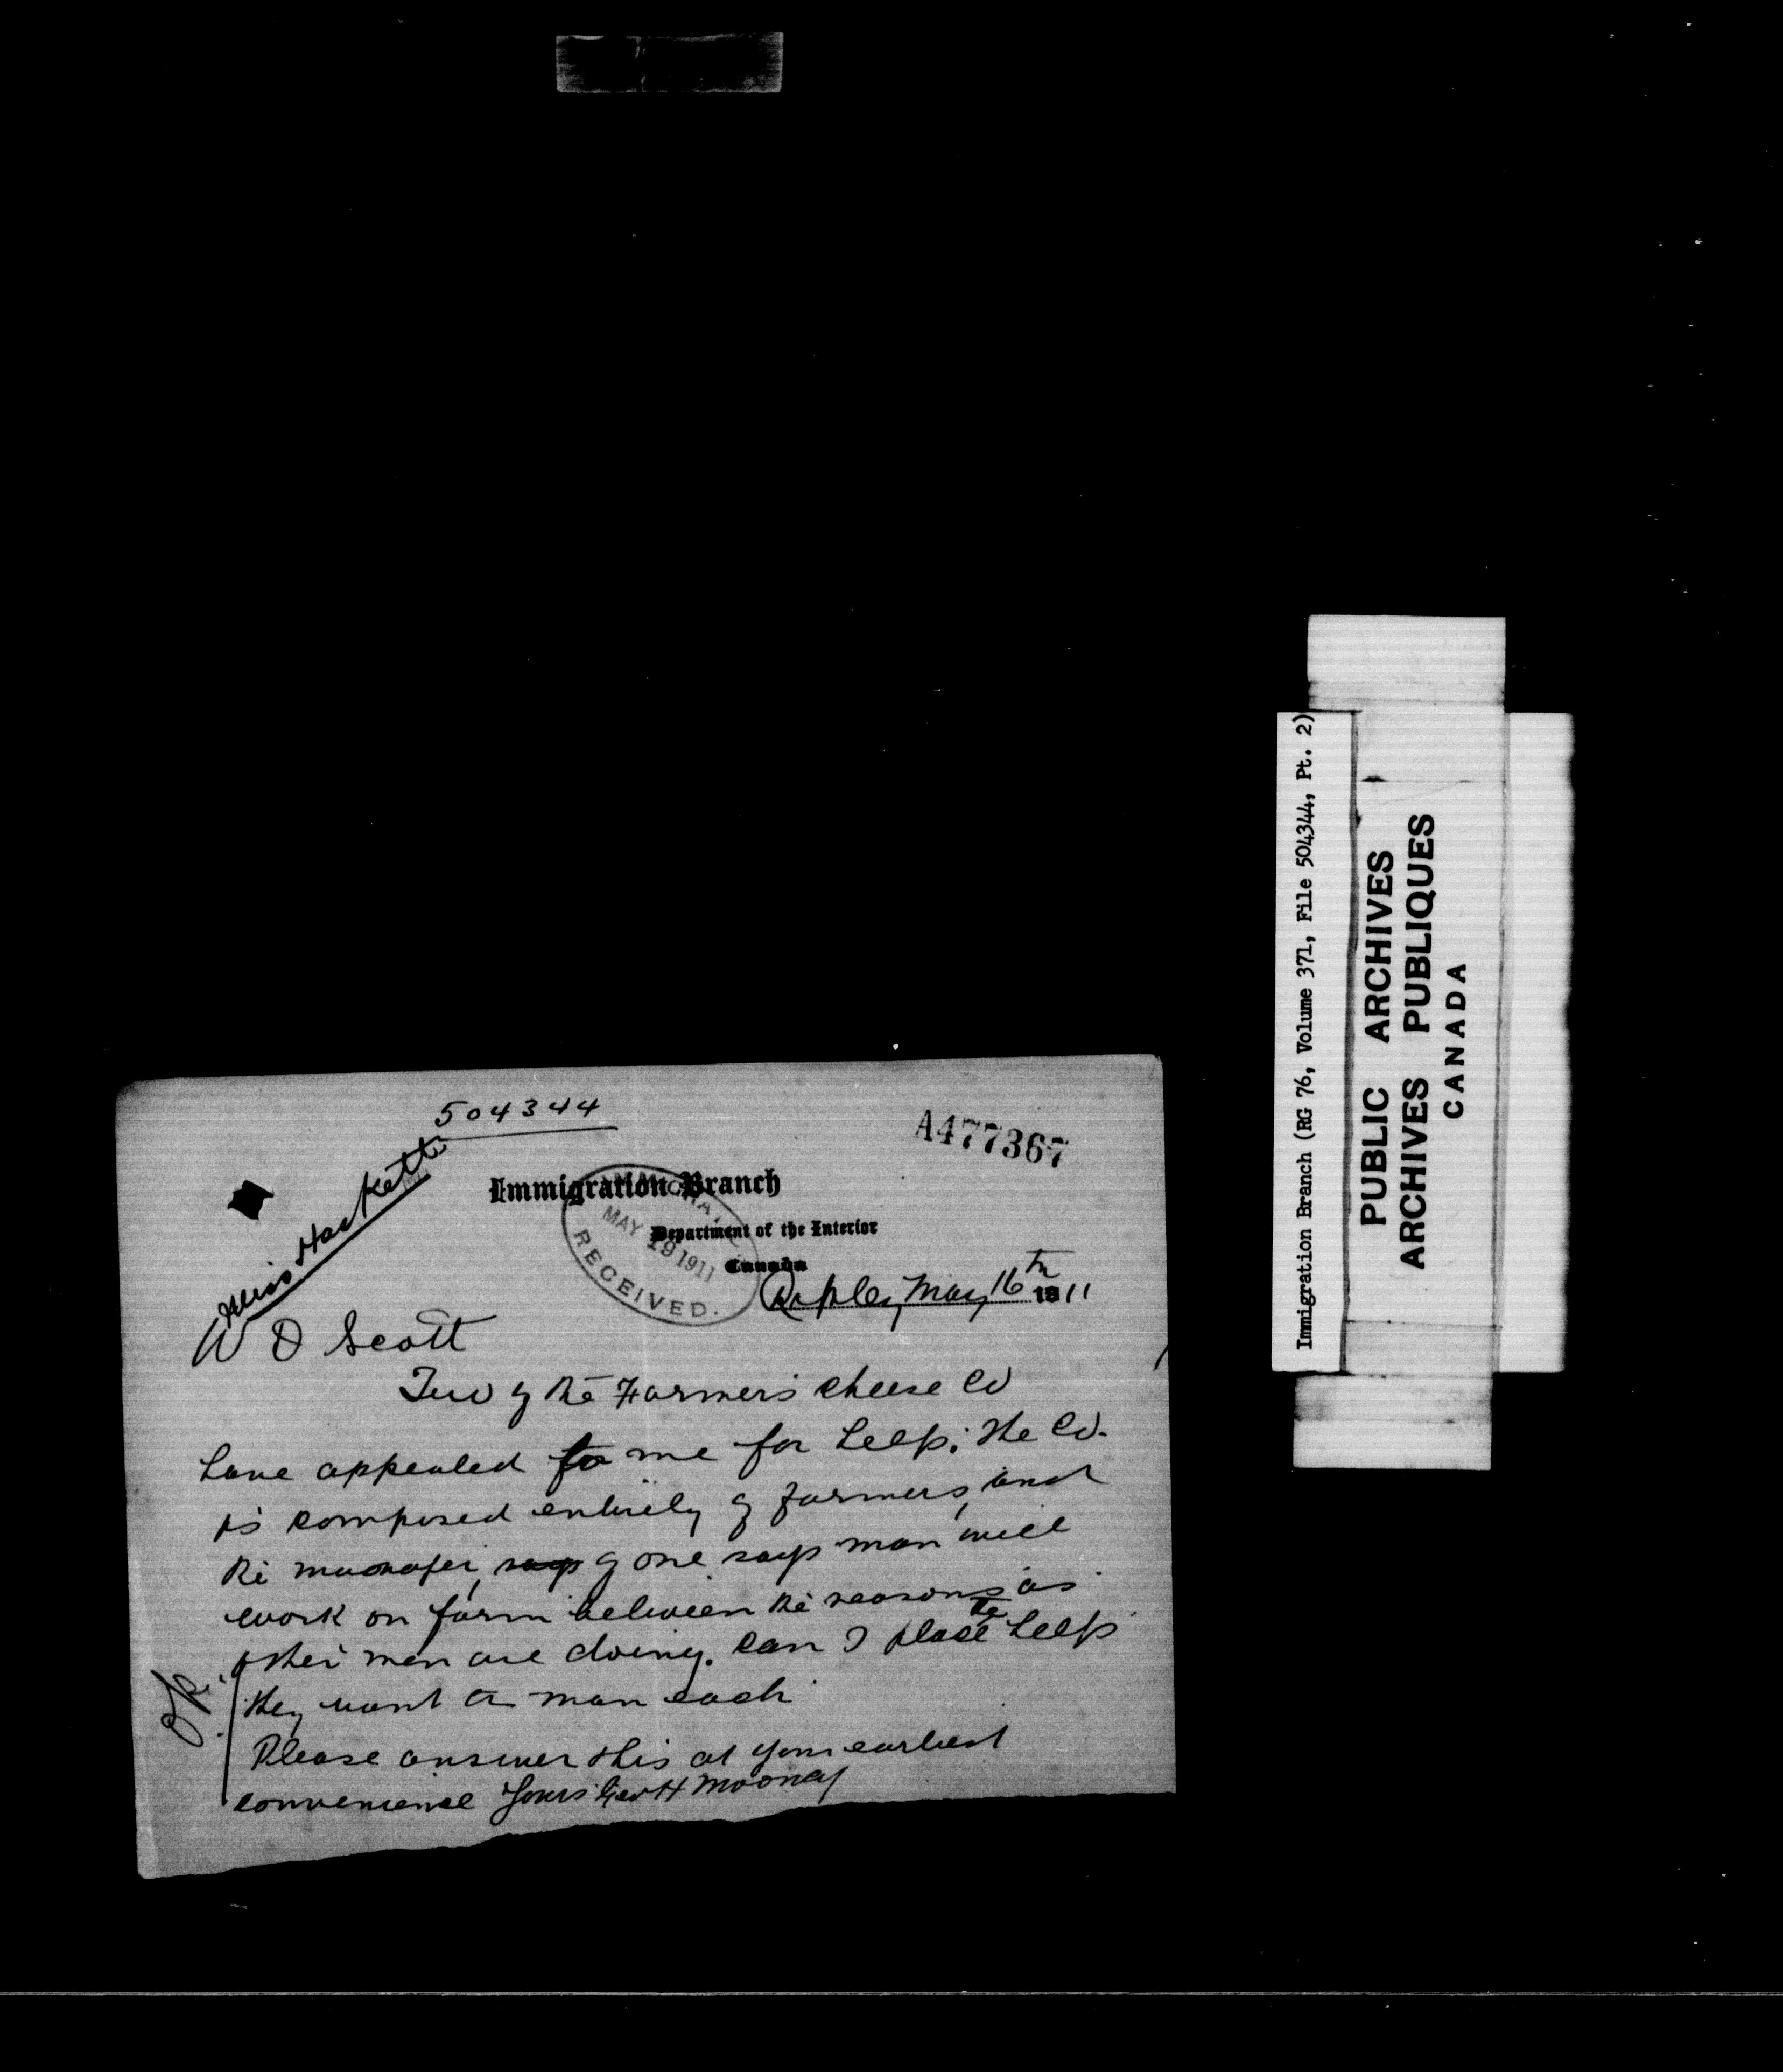 504344
A477367
Miss Hackett
Immigration Branch
Department of the Interior
Canada
IMMIGRA
MAY 19 1911
RECEIVED.
Ripley May 16th 1911
W D Scott
Two of the Farmers cheese Co
have appealed to me for help; The Co.
is composed entirely of farmers, and
the manager, says of one says man will
work on farm between the seasons as
other men are doing. Can I place the help
they want a man each
Please answer this at your earliest
convenience Yours Geo H Mooney
OK.
Immigration Branch (RG 76, Volume 371, File 504344, Pt. 2)
PUBLIC ARCHIVES
ARCHIVES PUBLIQUES
CANADA